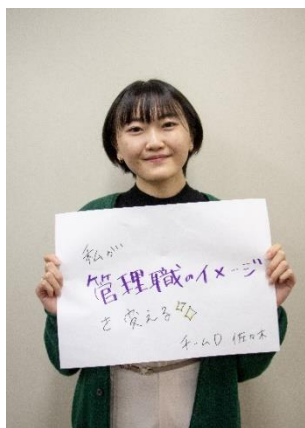 私が
管理職のイメージ
を変える
チームD 佐々木